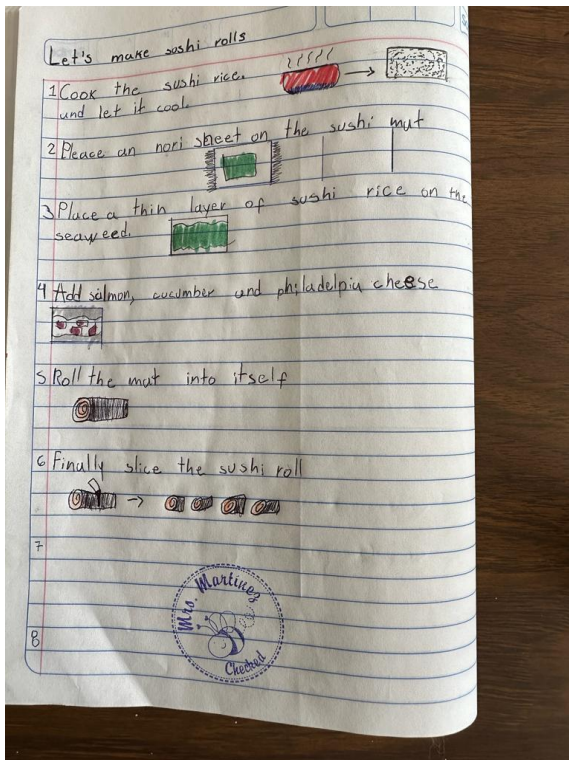 Let's make sushi rolls
1 Cook the sushi rice.
and let it cool
2 Pleace an nori sheet on the sushi mat
3 Place a thin layer of sushi rice on the
seaweed.
4 Add salmon, cucumber and philadelpia cheese
5 Roll the mat into itself
6 Finally slice the sushi roll
7
8
Mrs. Martinez
Checked